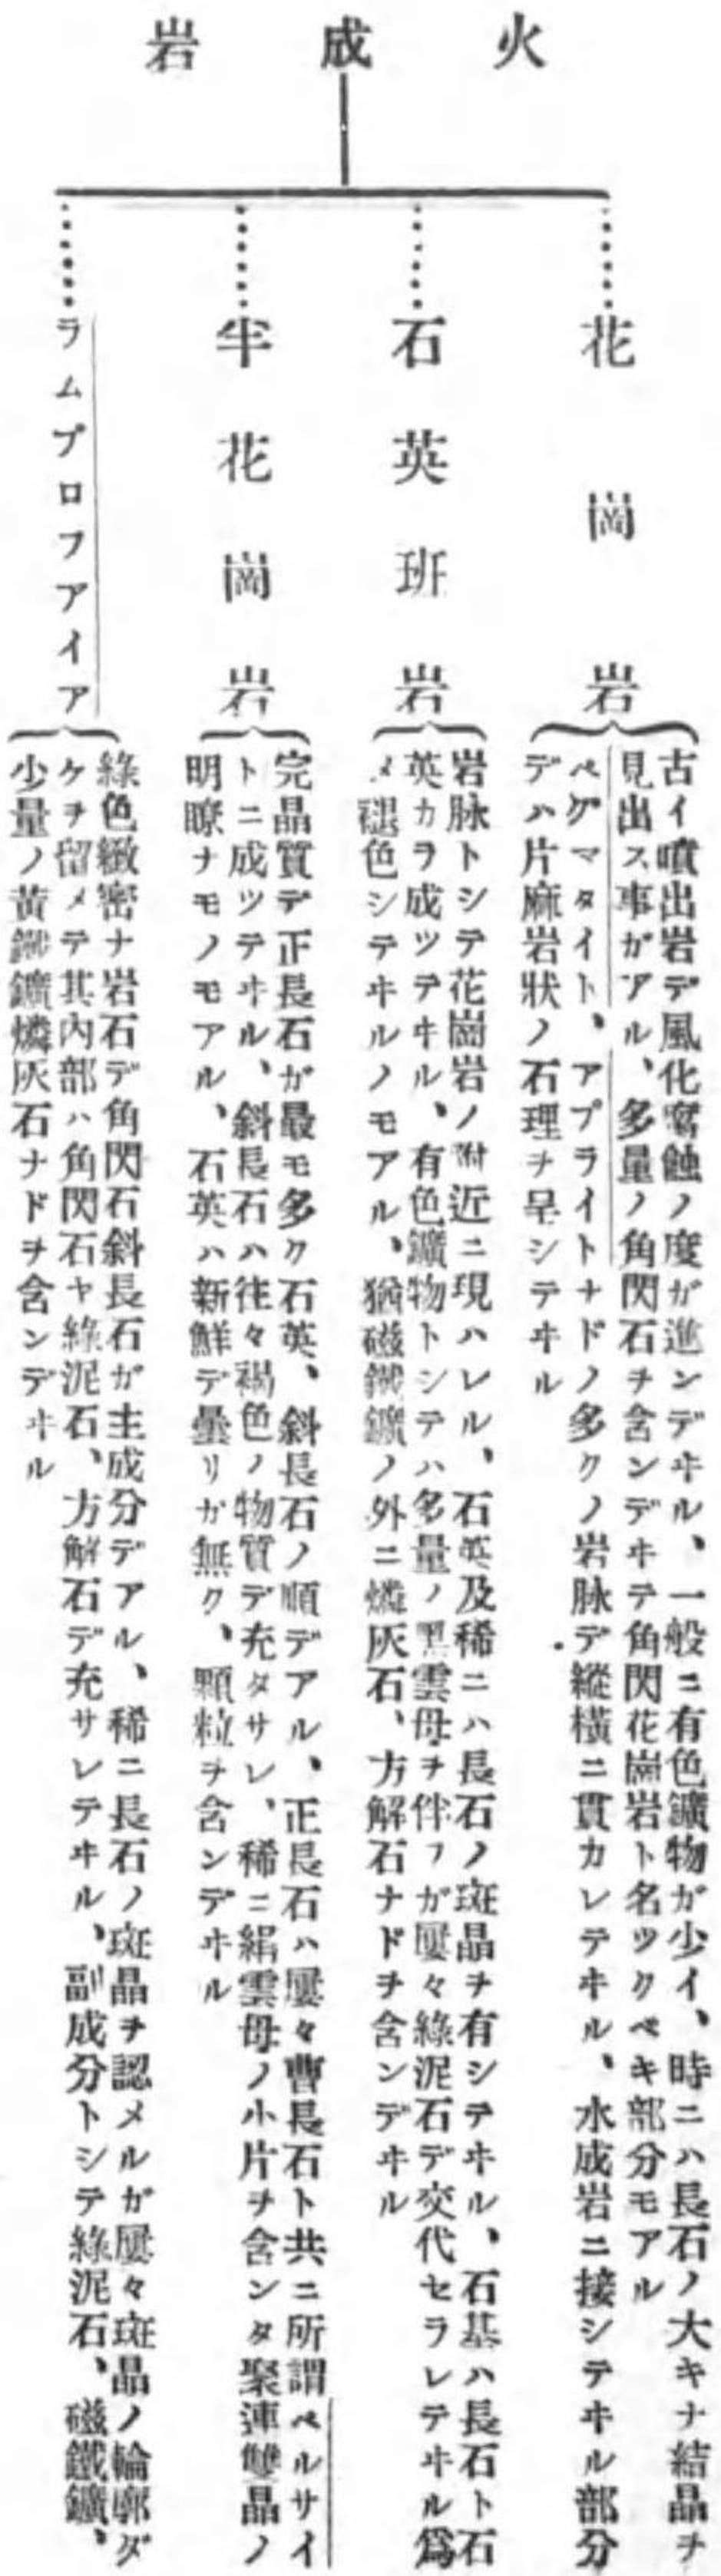 火成岩
花崗岩
古イ噴出岩デ風化腐蝕ノ度ガ進ンデヰル、一般ニ有色鑛物ガ少イ、時ニハ長石ノ大キナ結晶ヲ
見出ス事ガアル、多量ノ角閃石ヲ含ンデヰテ角閃花崗岩ト名ヅクベキ部分モアル
ペグマタイト、アプライトナドノ多クノ岩脉デ縱橫ニ貫カレテヰル、水成岩ニ接シテヰル部分
デハ片麻岩狀ノ石理ヲ呈シテヰル
石英班岩
岩脉トシテ花崗岩ノ附近ニ現ハレル、石英及稀ニハ長石ノ斑晶ヲ有シテヰル、石基ハ長石ト石
英カラ成ツテヰル、有色鑛物トシテハ多量ノ黑雲母ヲ伴フガ屢々綠泥石デ交代セラレテヰル爲
メ褪色シテヰルノモアル、猶磁鐵鑛ノ外ニ燐灰石、方解石ナドヲ含ンデヰル
半花崗岩
完晶質デ正長石ガ最モ多ク石英、斜長石ノ順デアル、正長石ハ屢々曹長石ト共ニ所謂ペルサイ
トニ成ツテヰル、斜長石ハ往々褐色ノ物質デ充タサレ、稀ニ絹雲母ノ小片ヲ含ンダ聚連雙晶ノ
明瞭ナモノモアル、石英ハ新鮮デ曇リガ無ク、顆粒ヲ含ンデヰル
ラムプロフアイア
綠色緻密ナ岩石デ角閃石斜長石ガ主成分デアル、稀ニ長石ノ斑晶ヲ認メルガ屢々斑晶ノ輪廓ダ
ケヲ留メテ其內部ハ角閃石ヤ綠泥石、方解石デ充サレテヰル、副成分トシテ綠泥石、磁鐵鑛、
少量ノ黃鐵鑛燐灰石ナドヲ含ンデヰル